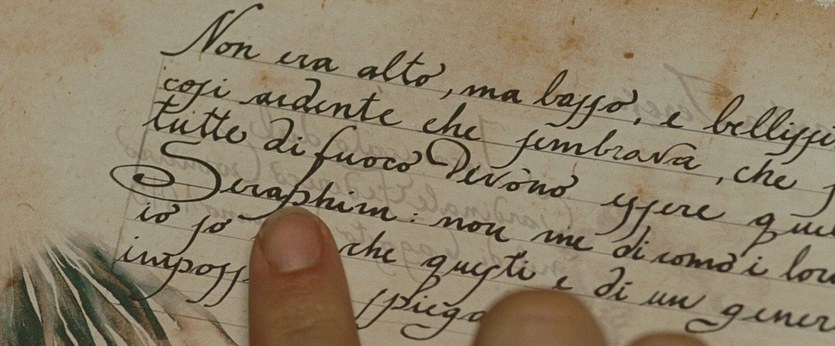 Non era alto, ma basso, e bellissi
cosi ardente che sembrava, che
tutte di fuoco Devono essere que
Seraphim: non me dicono i lor
io so che questi e di un gener
imposs spiega